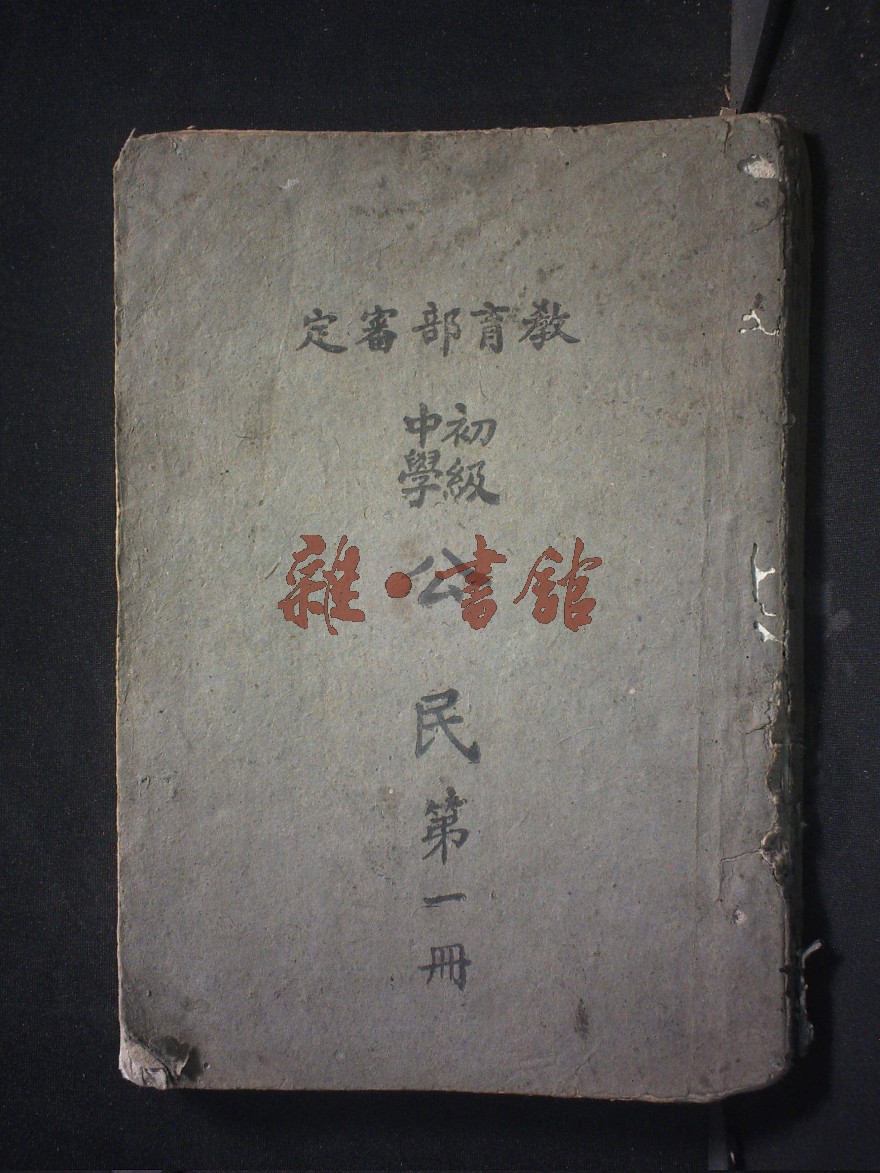 教育部審定
初級
中學
公民第一冊
雜·書館